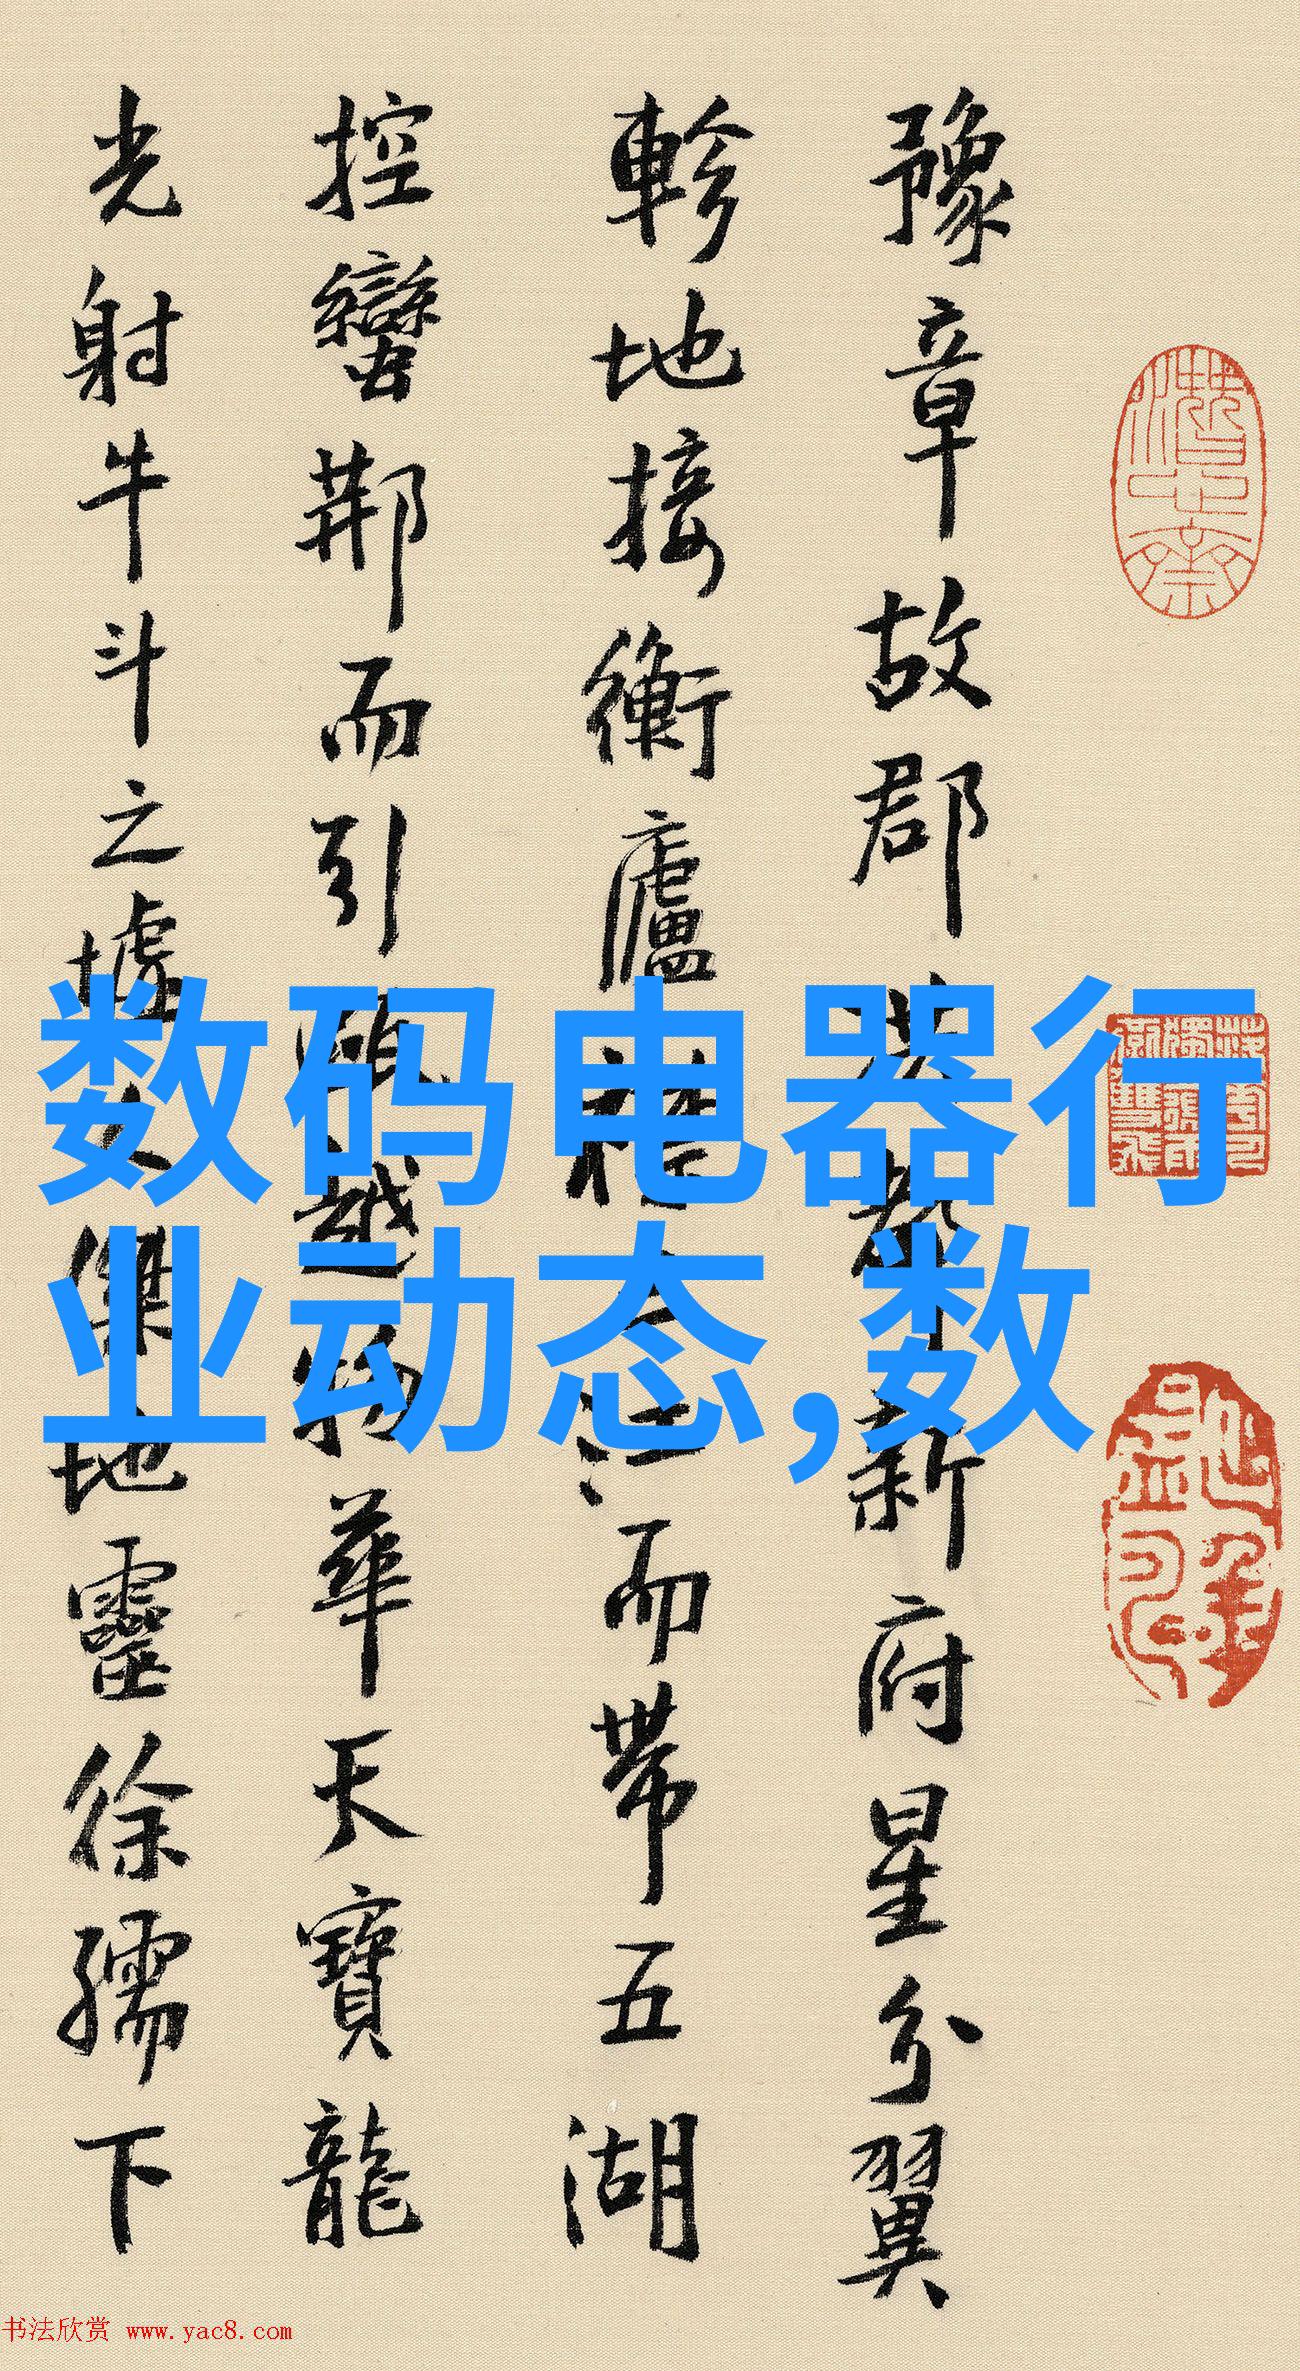 豫章故郡洪都新府星分翼
軫地接衡廬襟三江而帶五湖
控蠻荆而引甌越物華天寶龍
光射牛斗之墟人傑地靈徐孺下
数码电器行
业动态,数
书法欣赏 www.yac8.com